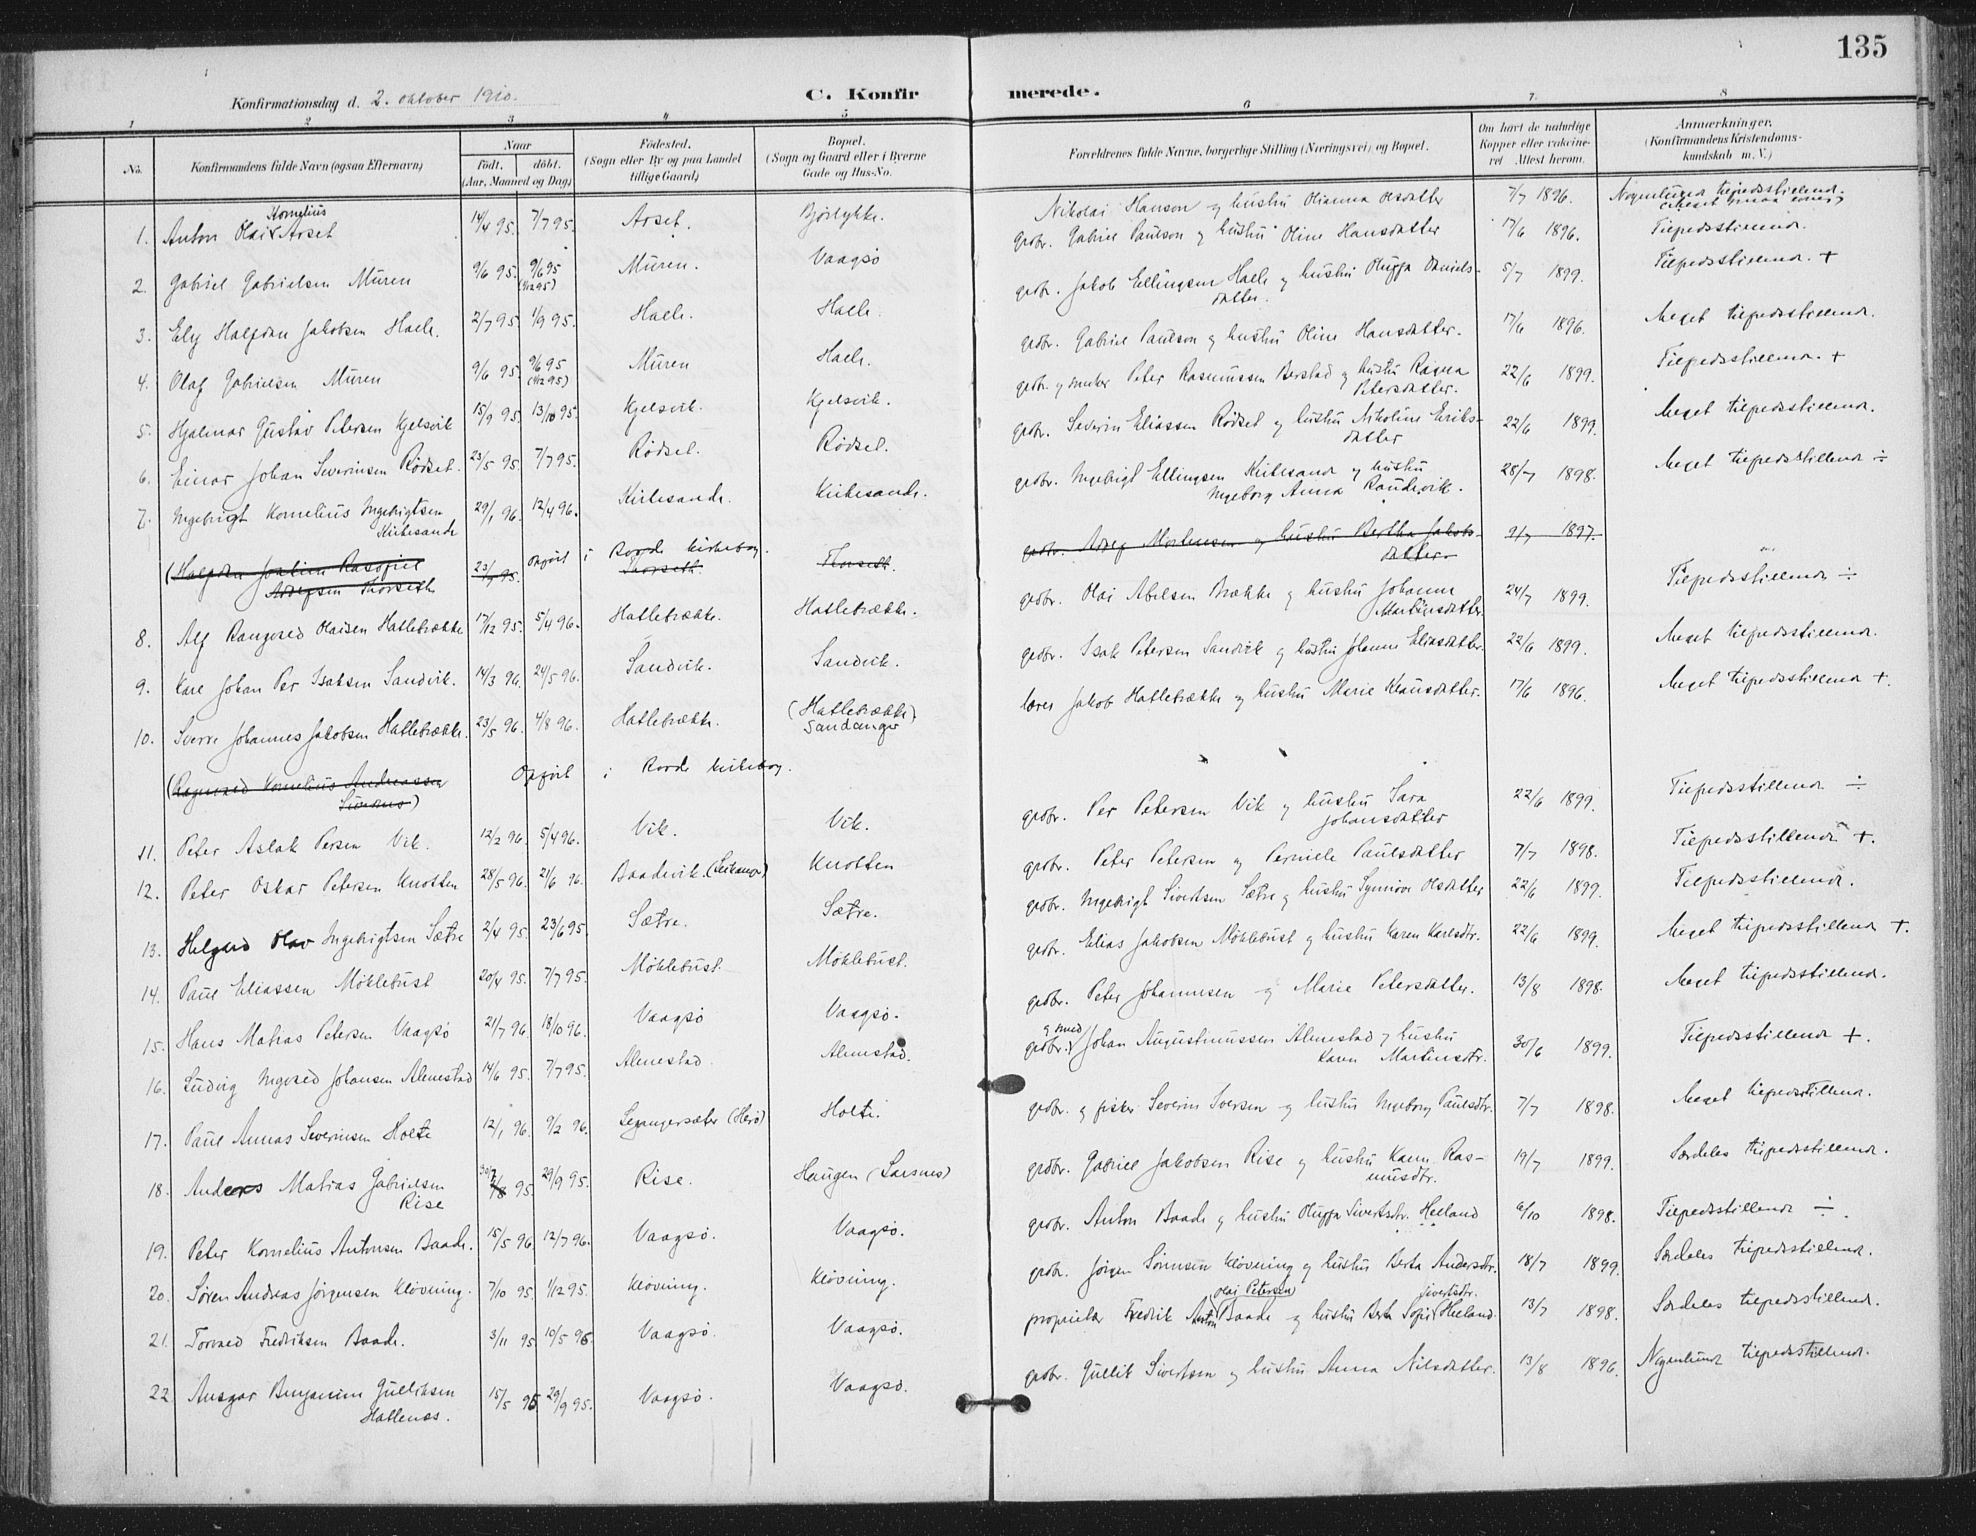 135
Konfirmationsdag d. 2. oktober 1910.
C. Konfir
merede.
1 2 3 4 5 6 7 8
No.
Konfirmandens fulde Navn (ogsaa Efternavn)
Naar
født. døbt.
(Aar, Maaned og Dag)
Fødested.
(Sogn eller By og paa Landet
tillige Gaard)
Bopæl.
(Sogn og Gaard eller i Byerne
Gade og Hus-No.
Forældrenes fulde Navne, borgerlige Stilling (Næringsvei) og Bopæl.
Om havt de naturlige
Kopper eller vaccine-
ret Attest herom.
Anmærkninger.
(Konfirmandens Kristendoms-
kundskab m. V.)
Kornelius
1. Anton Olai Arset 14/4 95. 7/7 95. Arset. Bjørlykke. Nikolai Hanson og hustru Olianna Olsdatter 7/7 1896. Nogenlund tilfredsstillend.
2. Gabriel Gabrielsen Muren 9/6 95. 9/6 95 Muren. Vaagsø gbr. Gabriel Paulson og hustru Oline Hansdatter 17/6 1896. Tilfredsstillend.
(1/12 95)
3. Ely Halfdan Jakobsen Hach. 2/7 95. 1/9 95. gbr. Jakob Ellingsen og hustru Oluffa Daniels- 5/7 1899. Tilfredsstillend. +
datter.
4. Olaf Gabrielsen Muren 9/6 95. 9/6 95 Muren gbr. Gabriel Paulson og hustru Oline Hansdatter. 17/6 1896. Meget tilfredsstillend.
(1/12 95)
5. Hjalmar Gustav Petersen Kjelsvik 15/9 95. 13/10 95. Kjelsvik. Kjelsvik. gbr. og Peter Rasmussen Berstad og hustru Ragna 22/6 1899. Tilfredsstillend. +
Petersdatter.
6. Einar Johan Severinsen Rødset. 23/5 95. 7/7 95. Rødset. Rødset. gbr. Severin Eliassen Rødset og hustru Nikoline Eriks- 22/6 1899. Meget tilfredsstillend.
datter
7. Ingebrigt Kornelius Ingebrigtsen 29/1 96. 12/4 96. Kirkesande. Kirkesande. gbr. Ingebrigt Ellingsen Kirkesand og hustru 28/7 1898. Meget tilfredsstillend ÷
Kirkesande
Ingeborg Anna
(Halfdan 23/7 95. Opført i Rovde kirkebog. Thorseth. og hustru Bertha Jakobs- 9/7 1897.
Thorseth
datter
8. Alf Rangvald Olaisen Hatlebrække 17/12 95. 5/4 96. Hatlebrække. Hatlebrække. gbr. Olai Abelsen Brække og hustru Johanne 24/7 1899. Tilfredsstillend ÷
Martinsdatter
9. Kare Johan Per Isaksen Sandvik. 14/3 96. 24/5 96. Sandvik. Sandvik. gbr. Isak Petersen Sandvik og hustru Johanne Eliasdatter. 22/6 1899. Meget tilfredsstillend.
10. Sverre Johannes Jakobsen Hatlebrække. 23/5 96. 4/8 96. Hatlebrække. (Hatlebrække) lærer Jakob Hatlebrække og hustru Marie Klausdatter. 17/6 1896. Meget tilfredsstillend +.
Sandanger
(Ragnvald Kornelius Andreassen Opført i Rovde kirkebog.
11. Peter Aslak Persen Vik. 12/2 96. 5/4 96. Vik. Vik. gbr. Per Petersen Vik og hustru Sara 22/6 1899. Tilfredsstillend ÷
Johansdatter
12. Peter Oskar Petersen Knotten 28/5 96. 21/6 96. Baadsvik. Knotten gbr. Peter Petersen og Pernele Paulsdatter 7/7 1898. Tilfredsstillend +.
13. Helgard Olav Ingebrigtsen Sætre 2/4 95. 23/6 95. Sætre. Sætre. gbr. Ingebrigt Sivertsen Sætre og hustru Synnøve Olsdatter 22/6 1899. Tilfredsstillend.
14. Paul Eliassen Møklebust 20/4 95. 7/7 95. Møklebust. Møklebust. gbr. Elias Jakobsen Møklebust og hustru Karen Karlsdtr. 22/6 1899. Meget tilfredsstillend +.
15. Hans Matias Petersen Vaagsø 21/7 96. 18/10 96. Vaagsø Vaagsø. gbr. Peter Johannesen og Marie Petersdatter. 13/8 1898. Meget tilfredsstillend.
og smed
16. Ludvig Ingvald Johansen Almestad 14/6 95. 7/7 95. Almestad. Almestad. gbr. Johan Augustinussen Almestad og hustru 30/6 1899. Tilfredsstillend +.
Karen Martinsdtr.
17. Paul Annas Severinsen Holte 12/1 96. 9/2 96. (Herø) Holte. gbr. og fisker Severin Iversen og hustru Ingeborg Paulsdtr. 7/7 1898. Meget tilfredsstillend.
18. Anders Matias Gabrielsen 95. 29/9 95. Rise. Haugen (Larsnes) gbr. Gabriel Jakobsen Rise og hustru Karen Ras- 19/7 1899. Særdeles tilfredsstillend.
Rise
musdtr.
19. Peter Kornelius Antonsen Baade. 15/5 96. 12/7 96. Vaagsø. Vaagsø. gbr. Anton Baade og hustru Oluffa Sivertsdtr. Heeland 6/10 1898. Tilfredsstillend ÷.
20. Søren Andreas Jørgensen Kløvning. 7/10 95. 1/12 95. Kløvning. Kløvning. gbr. Jørgen Sørensen Kløvning og hustru Berta Andersdtr. 18/7 1899. Særdeles tilfredsstillend.
Olai Petersen Sivertsdtr.
21. Torvald Fredriksen Baade. 3/11 95. 10/5 96. Vaagsø. Vaagsø. proprietær Fredrik Anton Baade og hustru Berte Sofie Heeland. 13/7 1898. Særdeles tilfredsstillend.
22 Ansgar Benjamin Gulliksen 15/5 95. 29/9 95. Vaagsø. Vaagsø. gbr. Gullik Sivertsen og hustru Anna Nilsdatter. 13/8 1896. Nogenlund tilfredsstillend.
Hallenæs.